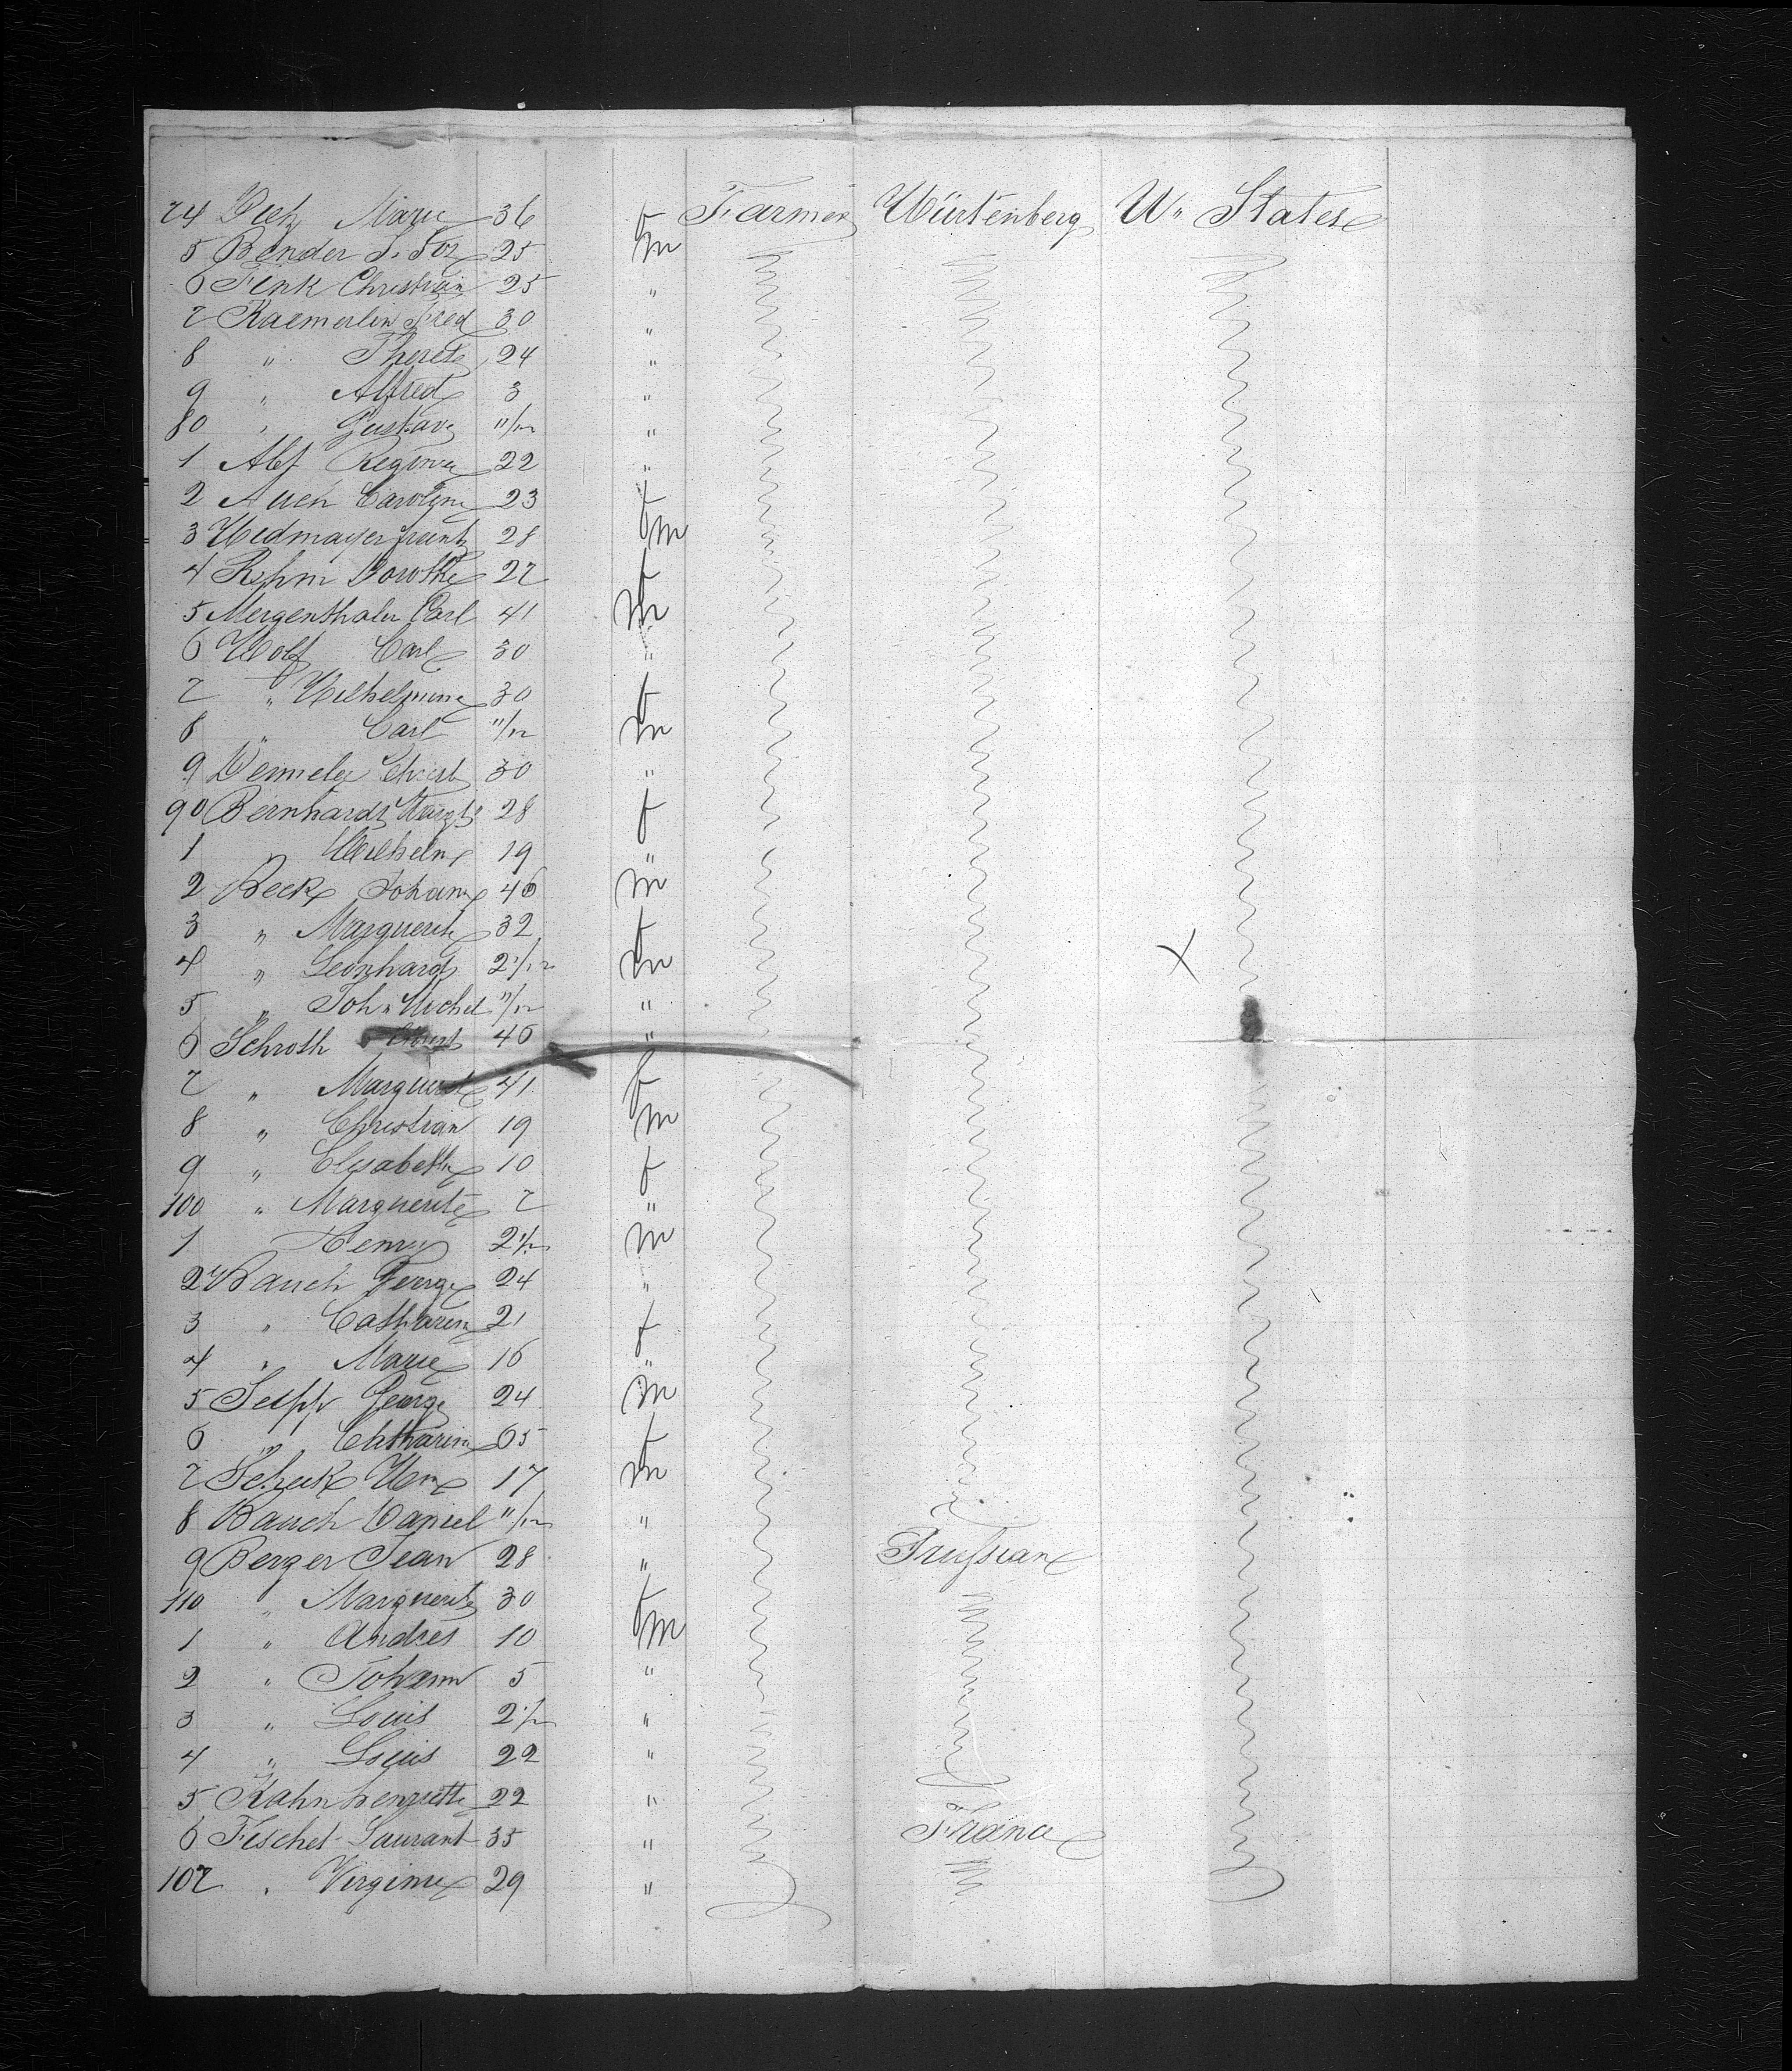 74 Marie 36 f Farmer Würtenberg U" States
5 Bender 25 m
6 Fink Christian 25 "
7 Kaemerlen Fred 30 "
8 " 24 "
9 " Alfred 3 "
80 " Gustav 11/12 "
1 Regina 22 "
2 Auch Caroline 23 f
3 28 m
4 Rehm Dorothe 27 f
5 Mergenthaler Carl 41 m
6 Wolf Carl 30 "
7 " Wilhelmine 30 f
8 " Carl 11/12 m
9 Christ 30 "
90 Bernhardt 28 f
1 " Wilhelm 19 "
2 Beck Johann 46 m
3 " Marguerite 32 f
4 " Leonhard 2 1/12 m X
5 " Joh" Michel 11/12 "
6 Schroth Christ 46 "
7 " Marguerite 41 f
8 " Christian 19 m
9 " Elisabeth 10 f
100 " Marguerite 7 "
1 Henry 2 1/12 m
2 Bauch George 24 "
3 " Catharin 21 f
4 " Marie 16 "
5 Seipp George 24 m
6 " Chtharin 65 f
7 Scheck Wm 17 m
8 Bauch Daniel 11/12 "
9 Berger Jean 28 " Prussian
110 " Marguerite 30 f
1 " Andres 10 m
2 " Johann 5 "
3 " Louis 2 1/12 "
4 " Louis 22 "
5 Kahn Henriette 22 "
6 Fischel Laurant 35 " France
107 " Virginie 29 "